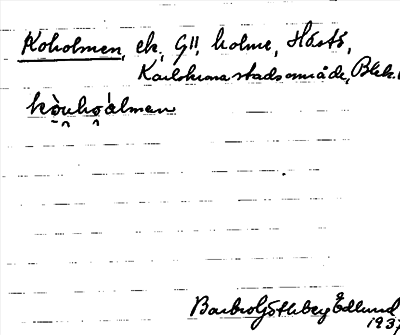 Koholmen, ek, Gll holme, Hástö,
Karlskrona stadsområde, Blek.
kò̯u̯ho̯álmen
Barbro Götheberg Edlund
1937